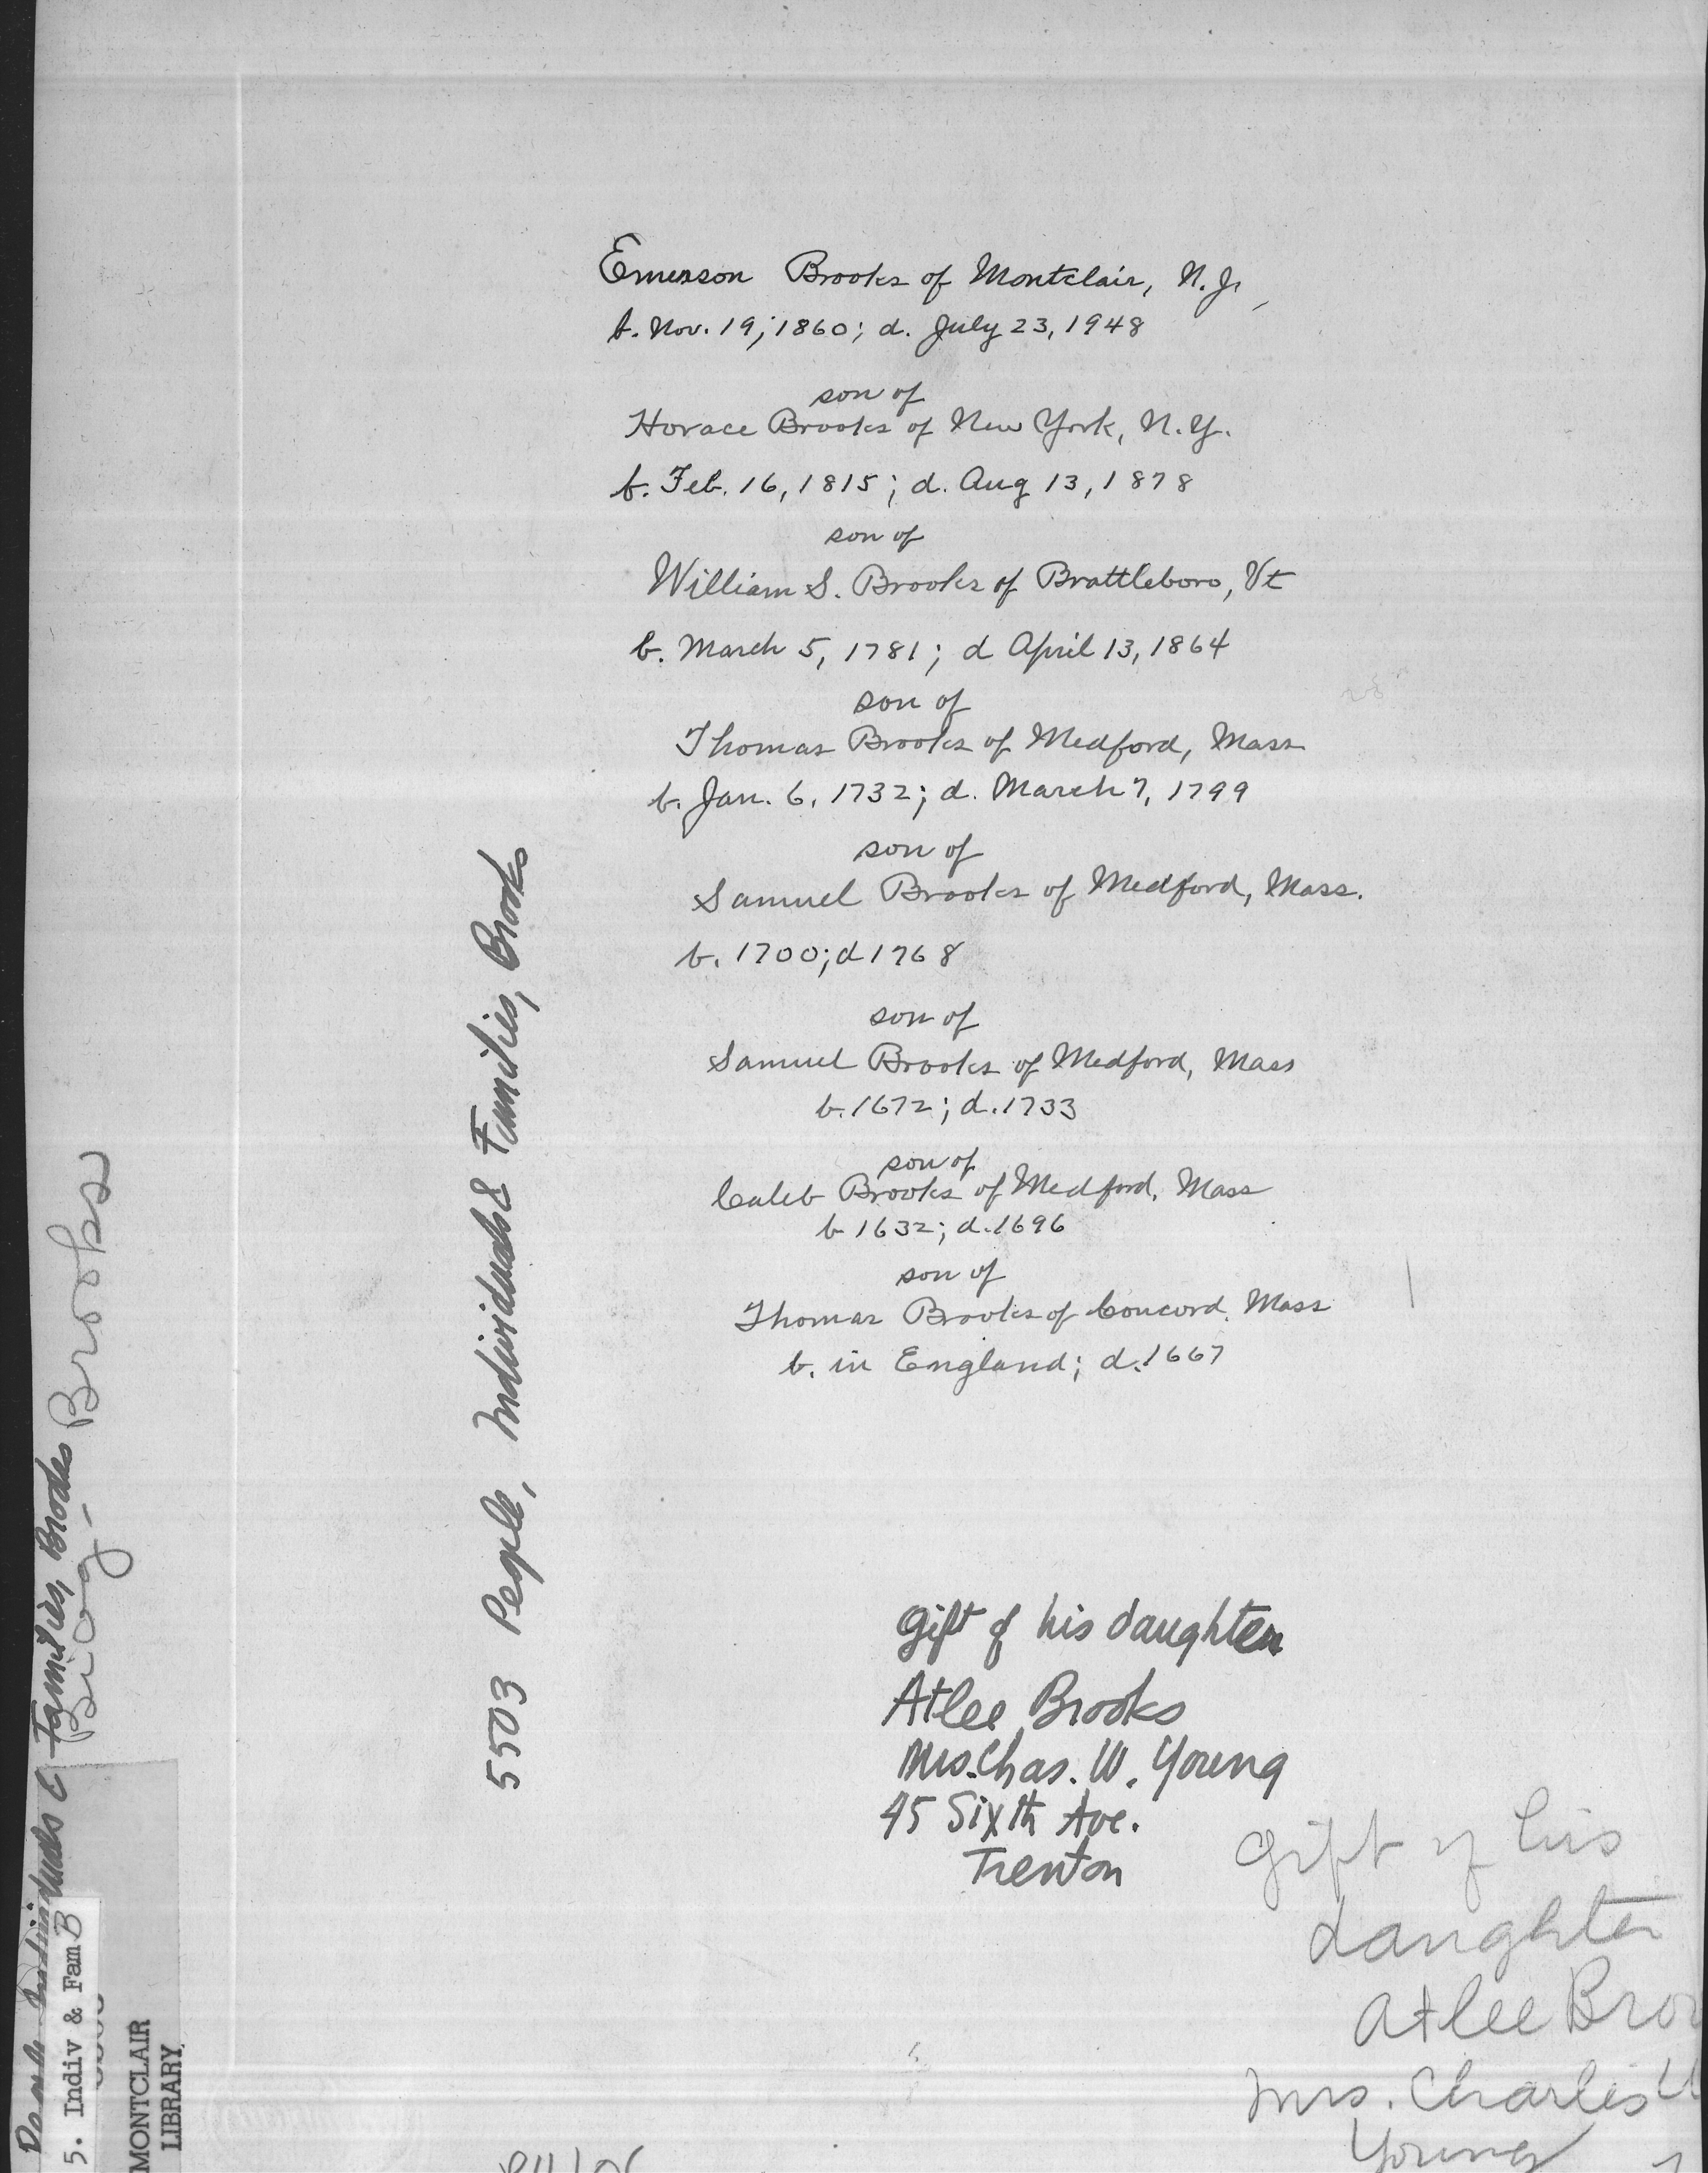 Emerson Brooks of Montclair, N.J.,
b. Nov. 19, 1860; d. July 23, 1948
son of
Horace Brooks of New York, N.Y.
b. Feb. 16, 1815; d. Aug 13, 1878
son of
William S. Brooks of Brattleboro, Vt
b. March 5, 1781; d April 13, 1864
son of
Thomas Brooks of Medford, Mass
b. Jan. 6, 1732; d. March 7, 1799
son of
Samuel Brooks of Medford, Mass.
b. 1700; d 1768
son of
Samuel Brooks of Medford, Mass
b. 1672; d. 1733
son of
Caleb Brooks of Medford, Mass
b 1632; d. 1696
son of
Thomas Brooks of Concord, Mass
b. in England; d. 1667
5503 People, Individuals & Families, Brooks
Gift of his daughter
Atlee Brooks
Mrs. Chas. W. Young
45 Sixth Ave.
Trenton
Gift of his
daughter
Atlee Broo
Mrs. Charles
Young
Individuals & Families, Brooks
Biog- Brooks
5. Indiv & Fam B
MONTCLAIR
LIBRARY